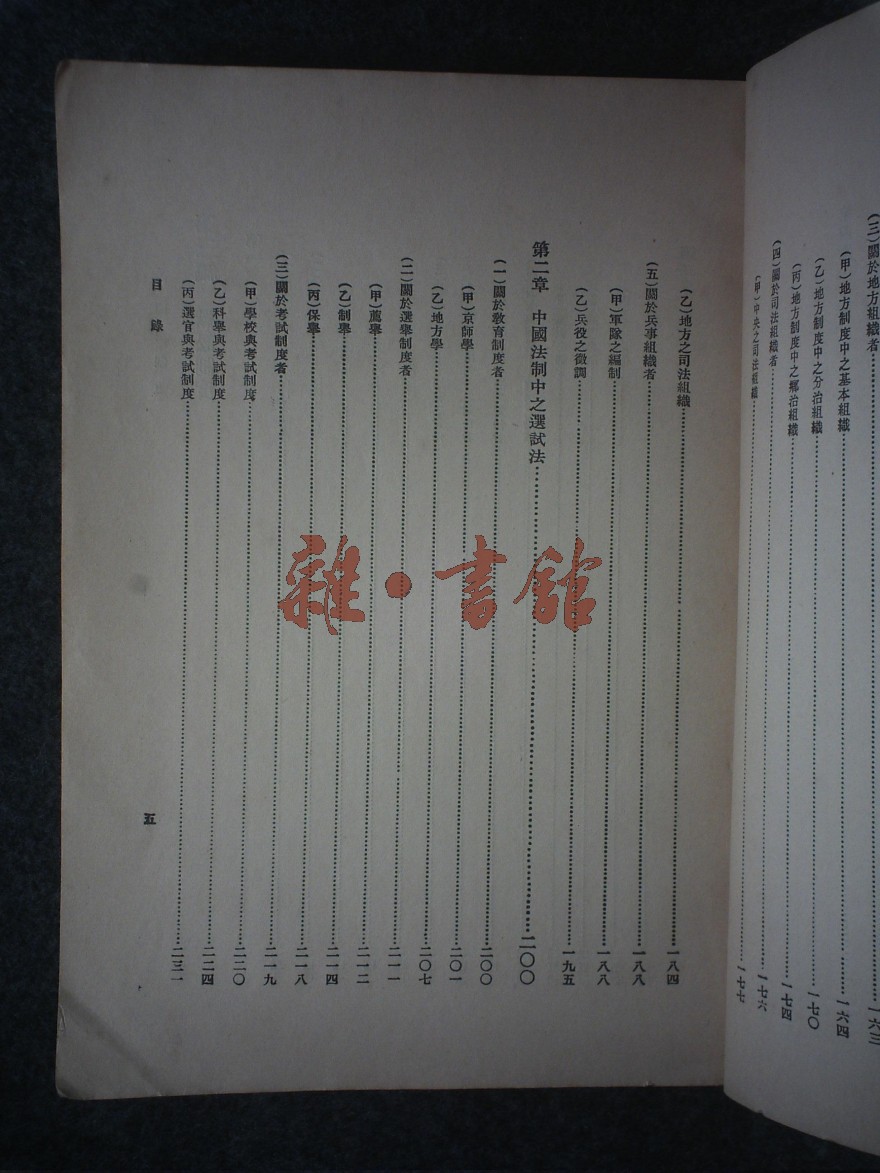 (三)關於地方組織者……一六三
(甲)地方制度中之基本組織……一六四
(乙)地方制度中之分治組織……一七〇
(丙)地方制度中之鄉治組織……一七四
(四)關於司法組織者……一七六
(甲)中央之司法組織……一七七
(乙)地方之司法組織……一八四
(五)關於兵事組織者……一八八
(甲)軍隊之編制……一八八
(乙)兵役之徵調……一九五
第二章 中國法制中之選試法……二〇〇
(一)關於教育制度者……二〇〇
(甲)京師學……二〇一
(乙)地方學……二〇七
(二)關於選舉制度者……二一一
(甲)薦舉……二一二
(乙)制舉……二一四
(丙)保舉……二一八
(三)關於考試制度者……二一九
(甲)學校與考試制度……二二〇
(乙)科舉與考試制度……二二四
(丙)選官與考試制度……二三一
目錄
五
雜·書館